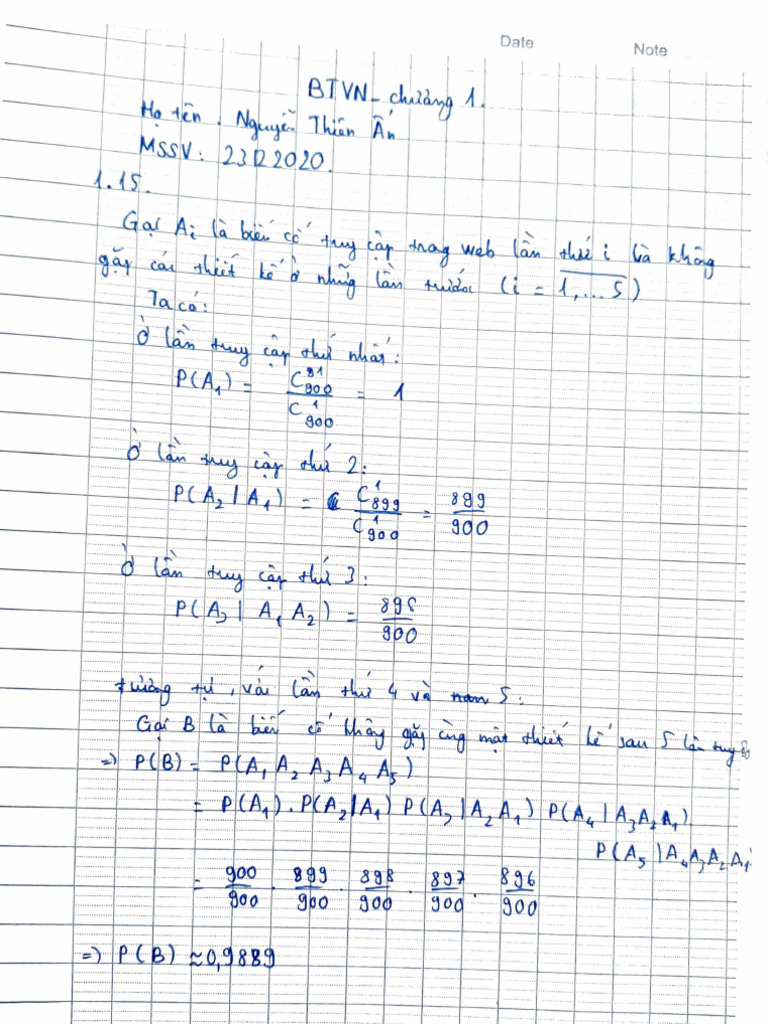 Date Note
BTVN_ chương 1.
Họ tên : Nguyễn Thiên Ấn
MSSV: 23122020.
1.15.
Gọi Aᵢ là biến cố truy cập trag web lần thứ i và không
gặp các thiết kế ở những lần trước (i = 1,...5)
Ta có:
Ở lần truy cập thứ nhất:
P(A₁) = C⁸¹₉₀₀ / C¹₉₀₀ = 1
Ở lần truy cập thứ 2:
P(A₂ | A₁) = C¹₈₉₉ / C¹₉₀₀ = 899/900
Ở lần truy cập thứ 3:
P(A₃ | A₁ A₂) = 898/900
tương tự, với lần thứ 4 và 5:
Gọi B là biến cố không gặp cùng một thiết kế sau 5 lần truy
=> P(B) = P(A₁ A₂ A₃ A₄ A₅)
= P(A₁) . P(A₂|A₁) P(A₃|A₂A₁) P(A₄|A₃A₂A₁).
P(A₅|A₄A₃A₂A₁)
= 900/900 . 899/900 . 898/900 . 897/900 . 896/900
=> P(B) ≈ 0,9889